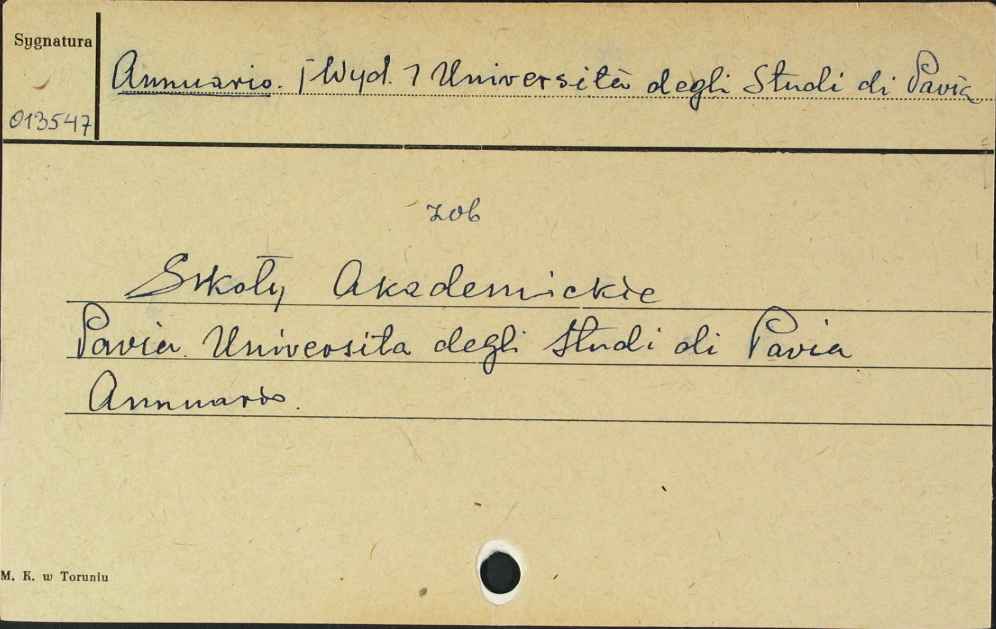 Sygnatura
Annuario. [Wyd.] Università degli Studi di Pavia
013547
zob
Szkoły Akademickie
Pavia. Universita degli Studi di Pavia
Annuario.
M. K. w Toruniu